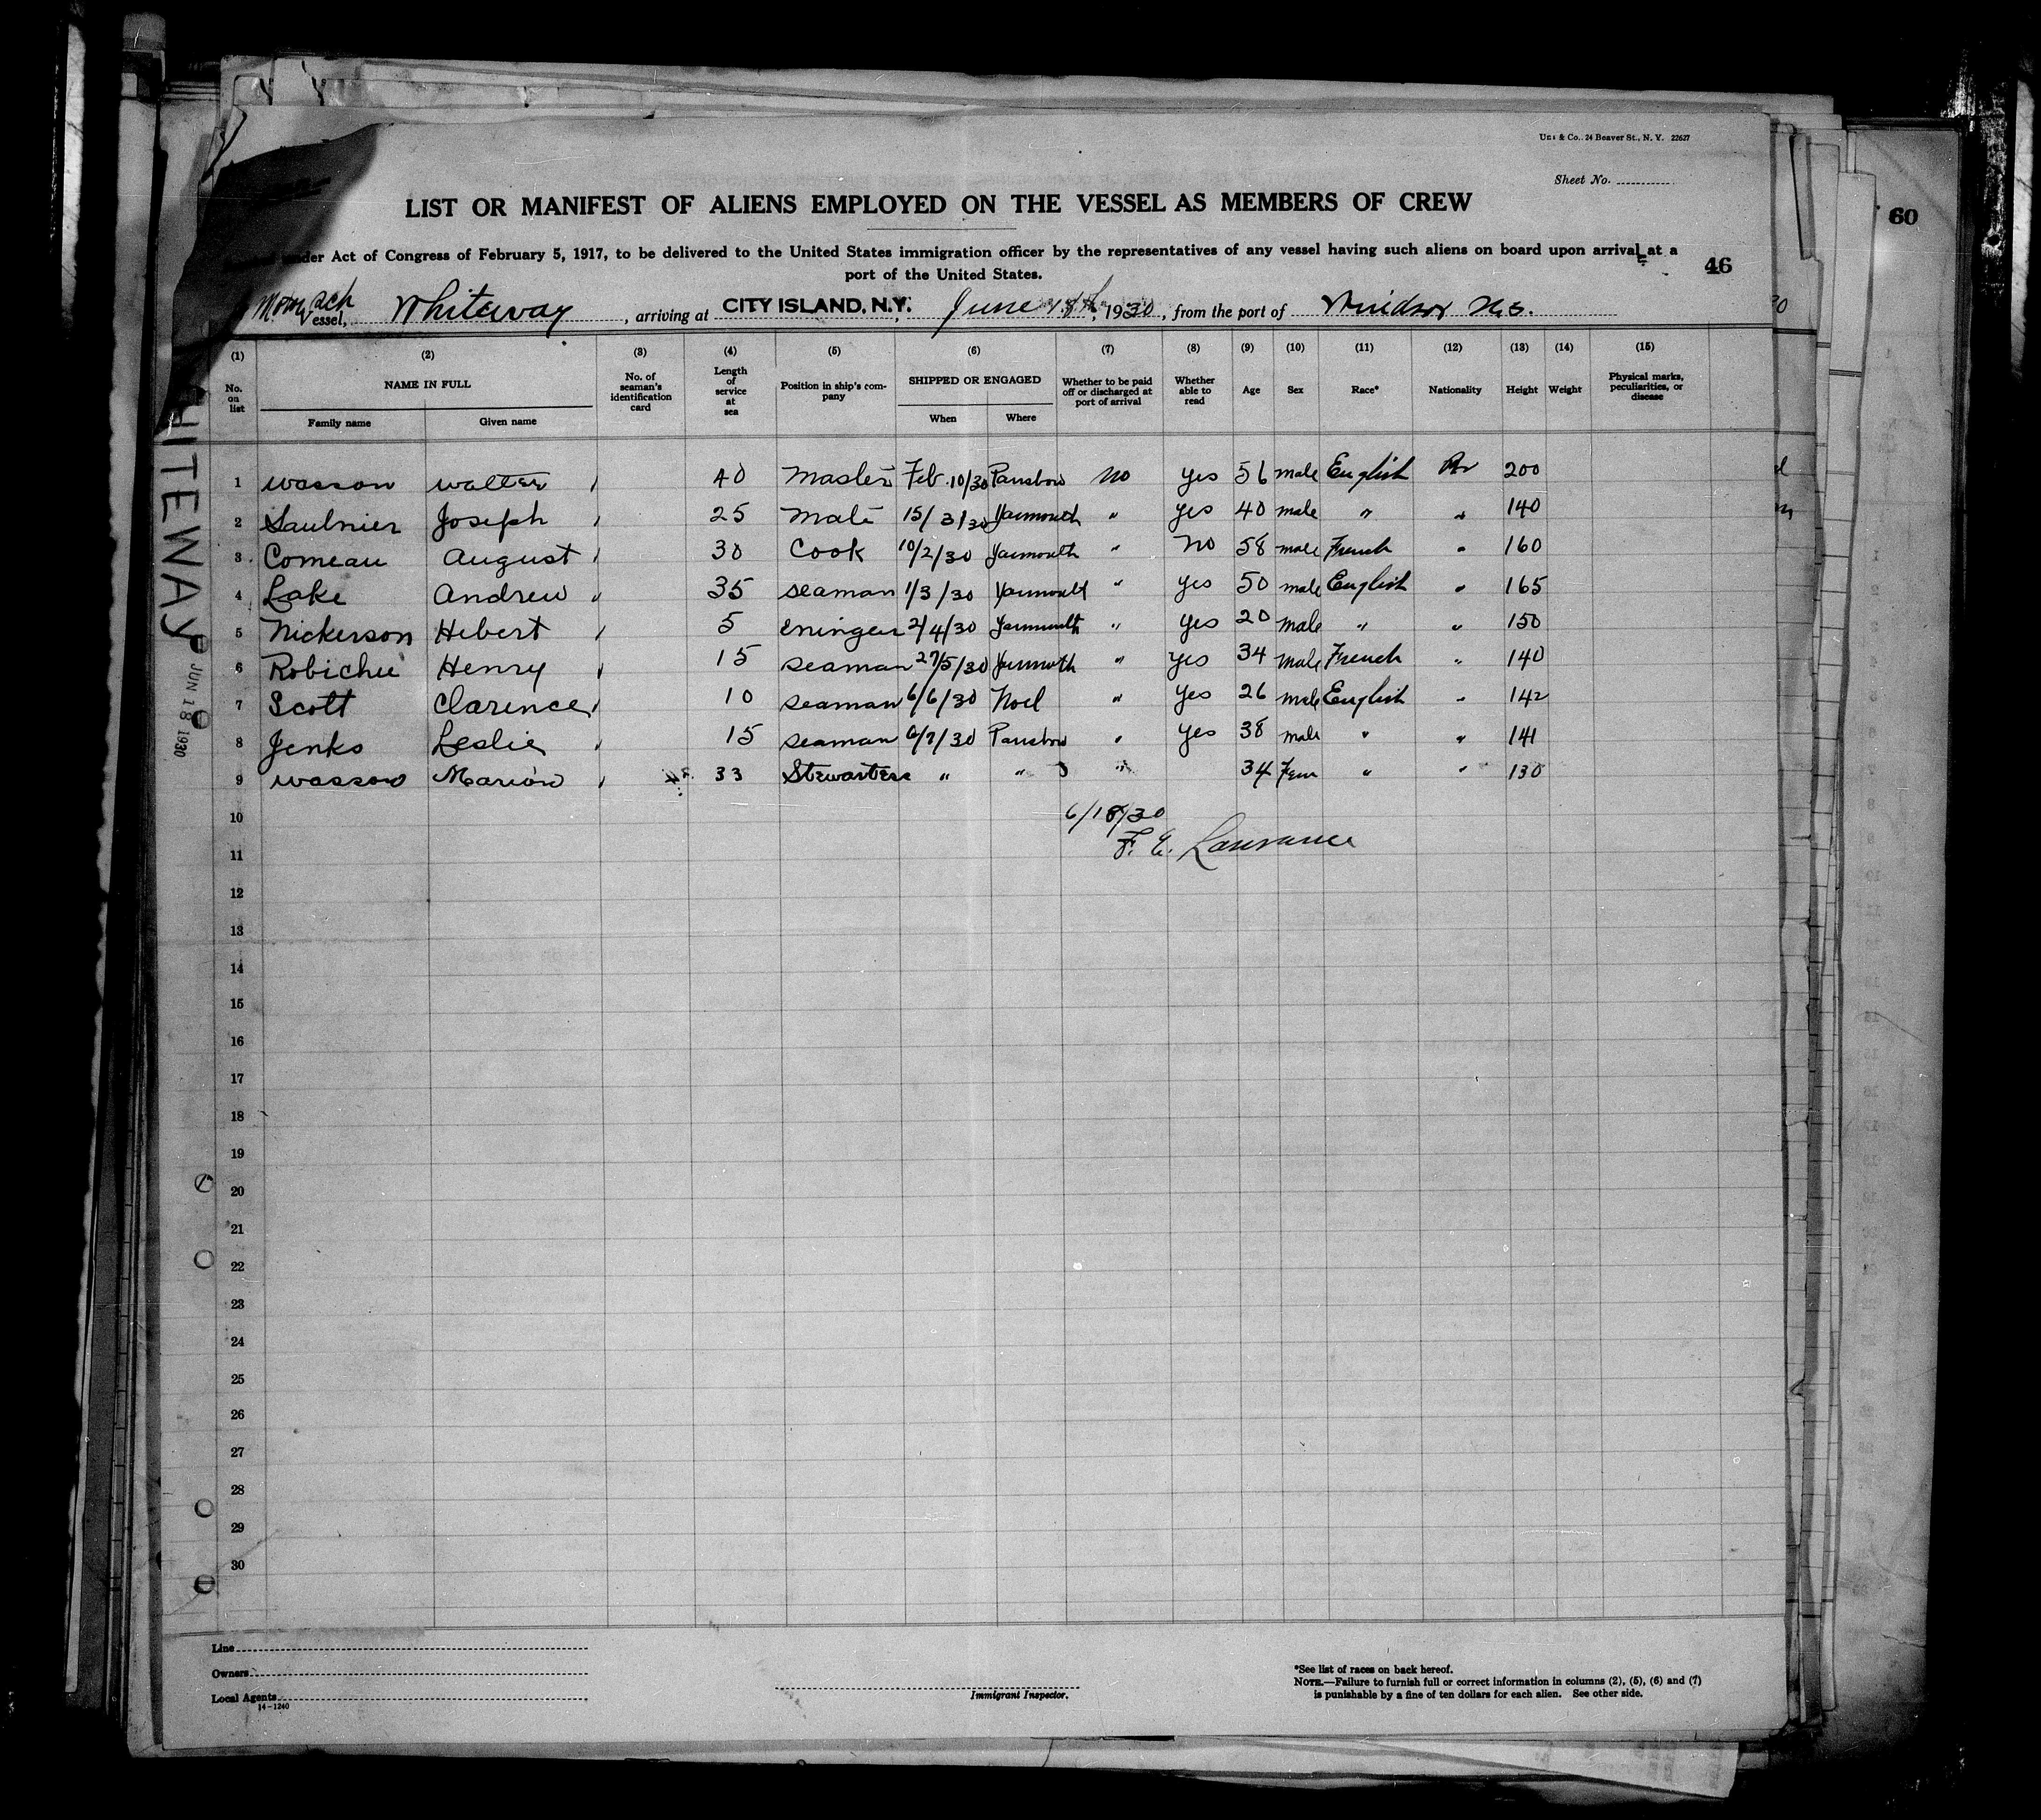 Sheet No.
60
LIST OR MANIFEST OF ALIENS EMPLOYED ON THE VESSEL AS MEMBERS OF CREW
under Act of Congress of February 5, 1917, to be delivered to the United States immigration officer by the representatives of any vessel having such aliens on board upon arrival at a
port of the United States.
46
Vessel, Whiteway, arriving at CITY ISLAND, N.Y. June 18th, 1930, from the port of Windsor N.S.
(1) (2) (3) (4) (5) (6) (7) (8) (9) (10) (11) (12) (13) (14) (15)
No. on list NAME IN FULL No. of seaman's identification card Length of service at sea Position in ship's company SHIPPED OR ENGAGED Whether to be paid off or discharged at port of arrival Whether able to read Age Sex Race* Nationality Height Weight Physical marks, peculiarities, or disease
Family name Given name When Where
1 Wasson Walter 40 Master Feb 10/30 Parrsboro No yes 56 male English Br 200
2 Saulnier Joseph 25 Mate 15/3/30 Yarmouth " yes 40 male " " 140
3 Comeau August 30 Cook 10/2/30 Yarmouth " No 58 male French " 160
4 Lake Andrew 35 seaman 1/3/30 Yarmouth " yes 50 male English " 165
5 Nickerson Hebert 5 eninger 2/4/30 Yarmouth " yes 20 male " " 150
6 Robichu Henry 15 seaman 27/5/30 Yarmouth " yes 34 male French " 140
7 Scott Clarence 10 seaman 6/6/30 Noel " yes 26 male English " 142
8 Jenks Leslie 15 seaman 6/7/30 Parrsboro " yes 38 male " " 141
9 Wasson Marion 33 Stewartess " " " 34 Fem " " 130
10 6/18/30
11 F. E. Lawrance
12
13
14
15
16
17
18
19
20
21
22
23
24
25
26
27
28
29
30
HITEWAY
JUN 18 1930
Line
Owners
Local Agents
14-1240
Immigrant Inspector.
*See list of races on back hereof.
NOTE.—Failure to furnish full or correct information in columns (2), (5), (6) and (7)
is punishable by a fine of ten dollars for each alien. See other side.